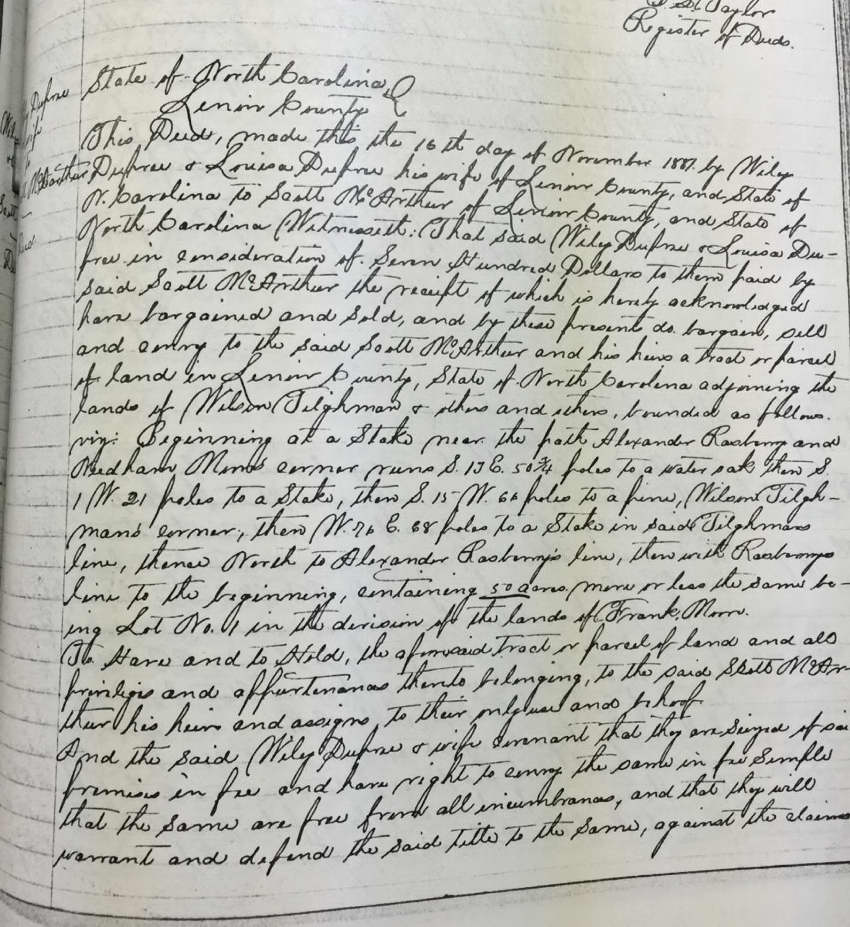 Taylor
Register of Deeds.
State of North Carolina,
Lenoir County
This Deed, made this the 16th day of November 1887. by Wiley
Dupree & Louisa Dupree his wife of Lenoir County, and State of
N. Carolina to Scott McArthur of Lenoir County, and State of
North Carolina Witnesseth: That said Wiley Dupree & Louisa Du-
pree in consideration of Seven Hundred Dollars to them paid by
said Scott McArthur the receipt of which is hereby acknowledged
have bargained and sold, and by these presents do bargain, sell
and convey to the said Scott McArthur and his heirs a tract or parcel
of land in Lenoir County, State of North Carolina adjoining the
lands of Wilson Tilghman & others and others, bounded as follows.
viz: Beginning at a Stake near the path Alexander Rasberry and
Needham Moore's corner runs S. 13 E. 50 3/4 poles to a water oak then S.
1 W. 21 poles to a Stake, then S. 15 W. 66 poles to a pine, Wilson Tilgh-
mans corner, then N. 76 E. 68 poles to a Stake in said Tilghmans
line, thence North to Alexander Rasberry's line, then with Rasberrys
line to the beginning, containing 50 acres more or less the same be-
ing Lot No. 1 in the division of the lands of Frank Moore.
To Have and to Hold, the aforesaid tract or parcel of land and all
privileges and appurtenances thereto belonging, to the said Scott McAr
thur his heirs and assigns, to their only use and behoof
And the said Wiley Dupree & wife covenant that they are seized of sai
premises in fee and have right to convey the same in fee Simple
that the same are free from all incumbrances, and that they will
warrant and defend the said title to the same, against the claims